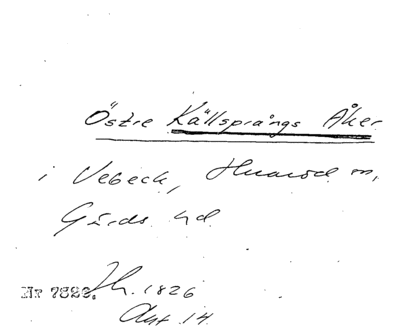 Östre Källsprångs Åker
i Vebeck, Huaröd sn,
Gärds hd
Nr 7823. Jh. 1826
Akt 14.